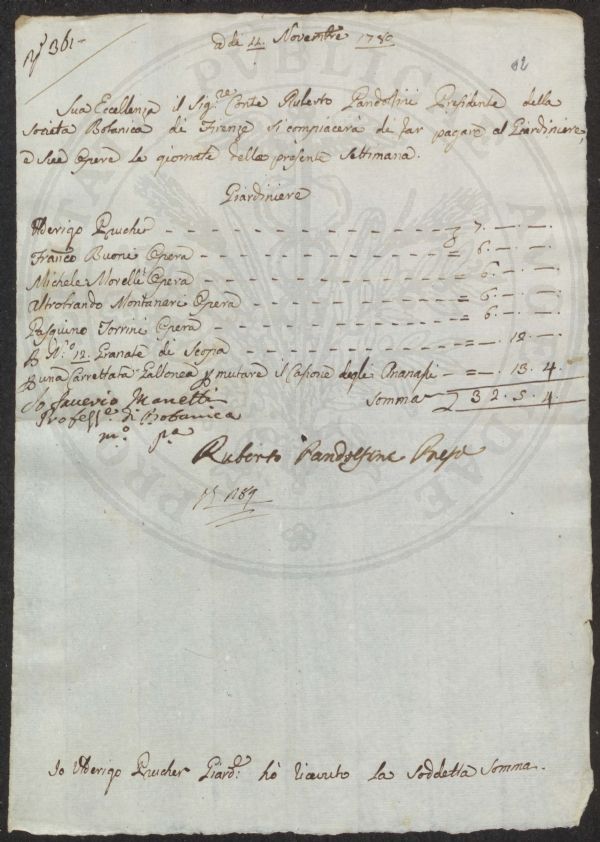 N.° 361
a dì 11. Novembre 1780
82
Sua Eccellenza il Sig.re Conte Ruberto Pandolfini Presidente della
Società Botanica di Firenze si compiacerà di far pagare al Giardiniere,
e sue Opere le giornate della presente Settimana.
Giardiniere
Ulderigo Prucher - - - 7. — . — .
Franco Buoni Opera - - - = 6. — . — .
Michele Morelli Opera - - - = 6. — . — .
Montanari Opera - - - = 6. — . — .
Pasquino Torrini Opera - - - = 6. — . — .
N.o 12. Granate di Scopa - - - = — . 12. — .
una Carrettata Vallonea mutare il Casione degli Ananassi - = — . 13. 4.
Somma 32. 5. 4.
Io Saverio Manetti
Profess.e di Botanica
m.o p.a
Ruberto Pandolfini Preste
1189
PRO PUBLICAE
Io Ulderigo Prucher Giard.e hò ricevuto la soddetta Somma.